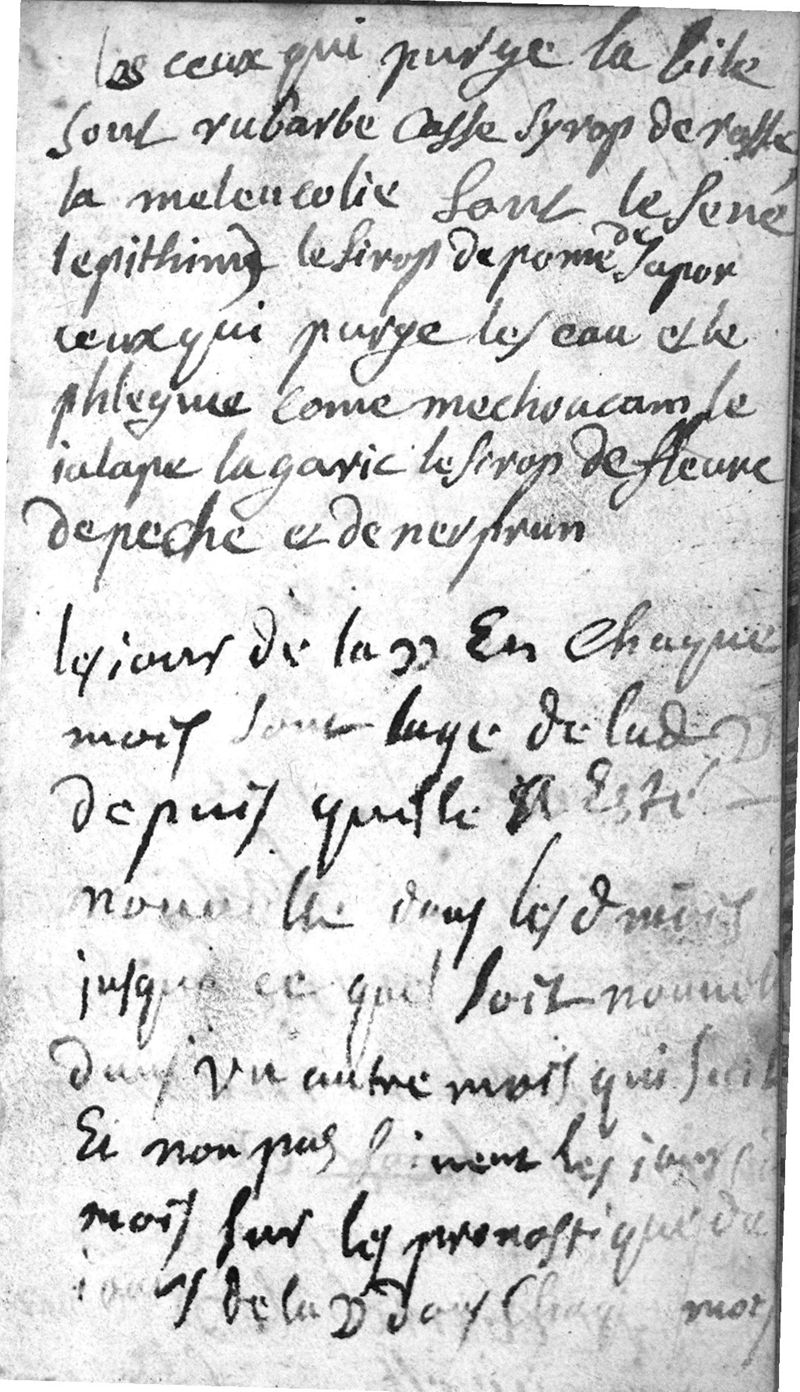 les ceux qui purge la bile
sont rubarbe Casse Syrop de rosse
la melencolie sont le sené
lepithime le sirop de pome de sapor
ceux qui purge les eau et le
phlegme come mechoacam le
ialape lagaric le sirop de fleure
de peche et de nerprun
les iour de la En chaque
mois sont lage de lad
depuis quelle a Esté
nouvelle dans les d mois
jusque ce quel soit nouvel
dans vn autre mois qui suit
Et non pas sivent les iours
mois sur les pronostique de
iours de la dans Chaq mois